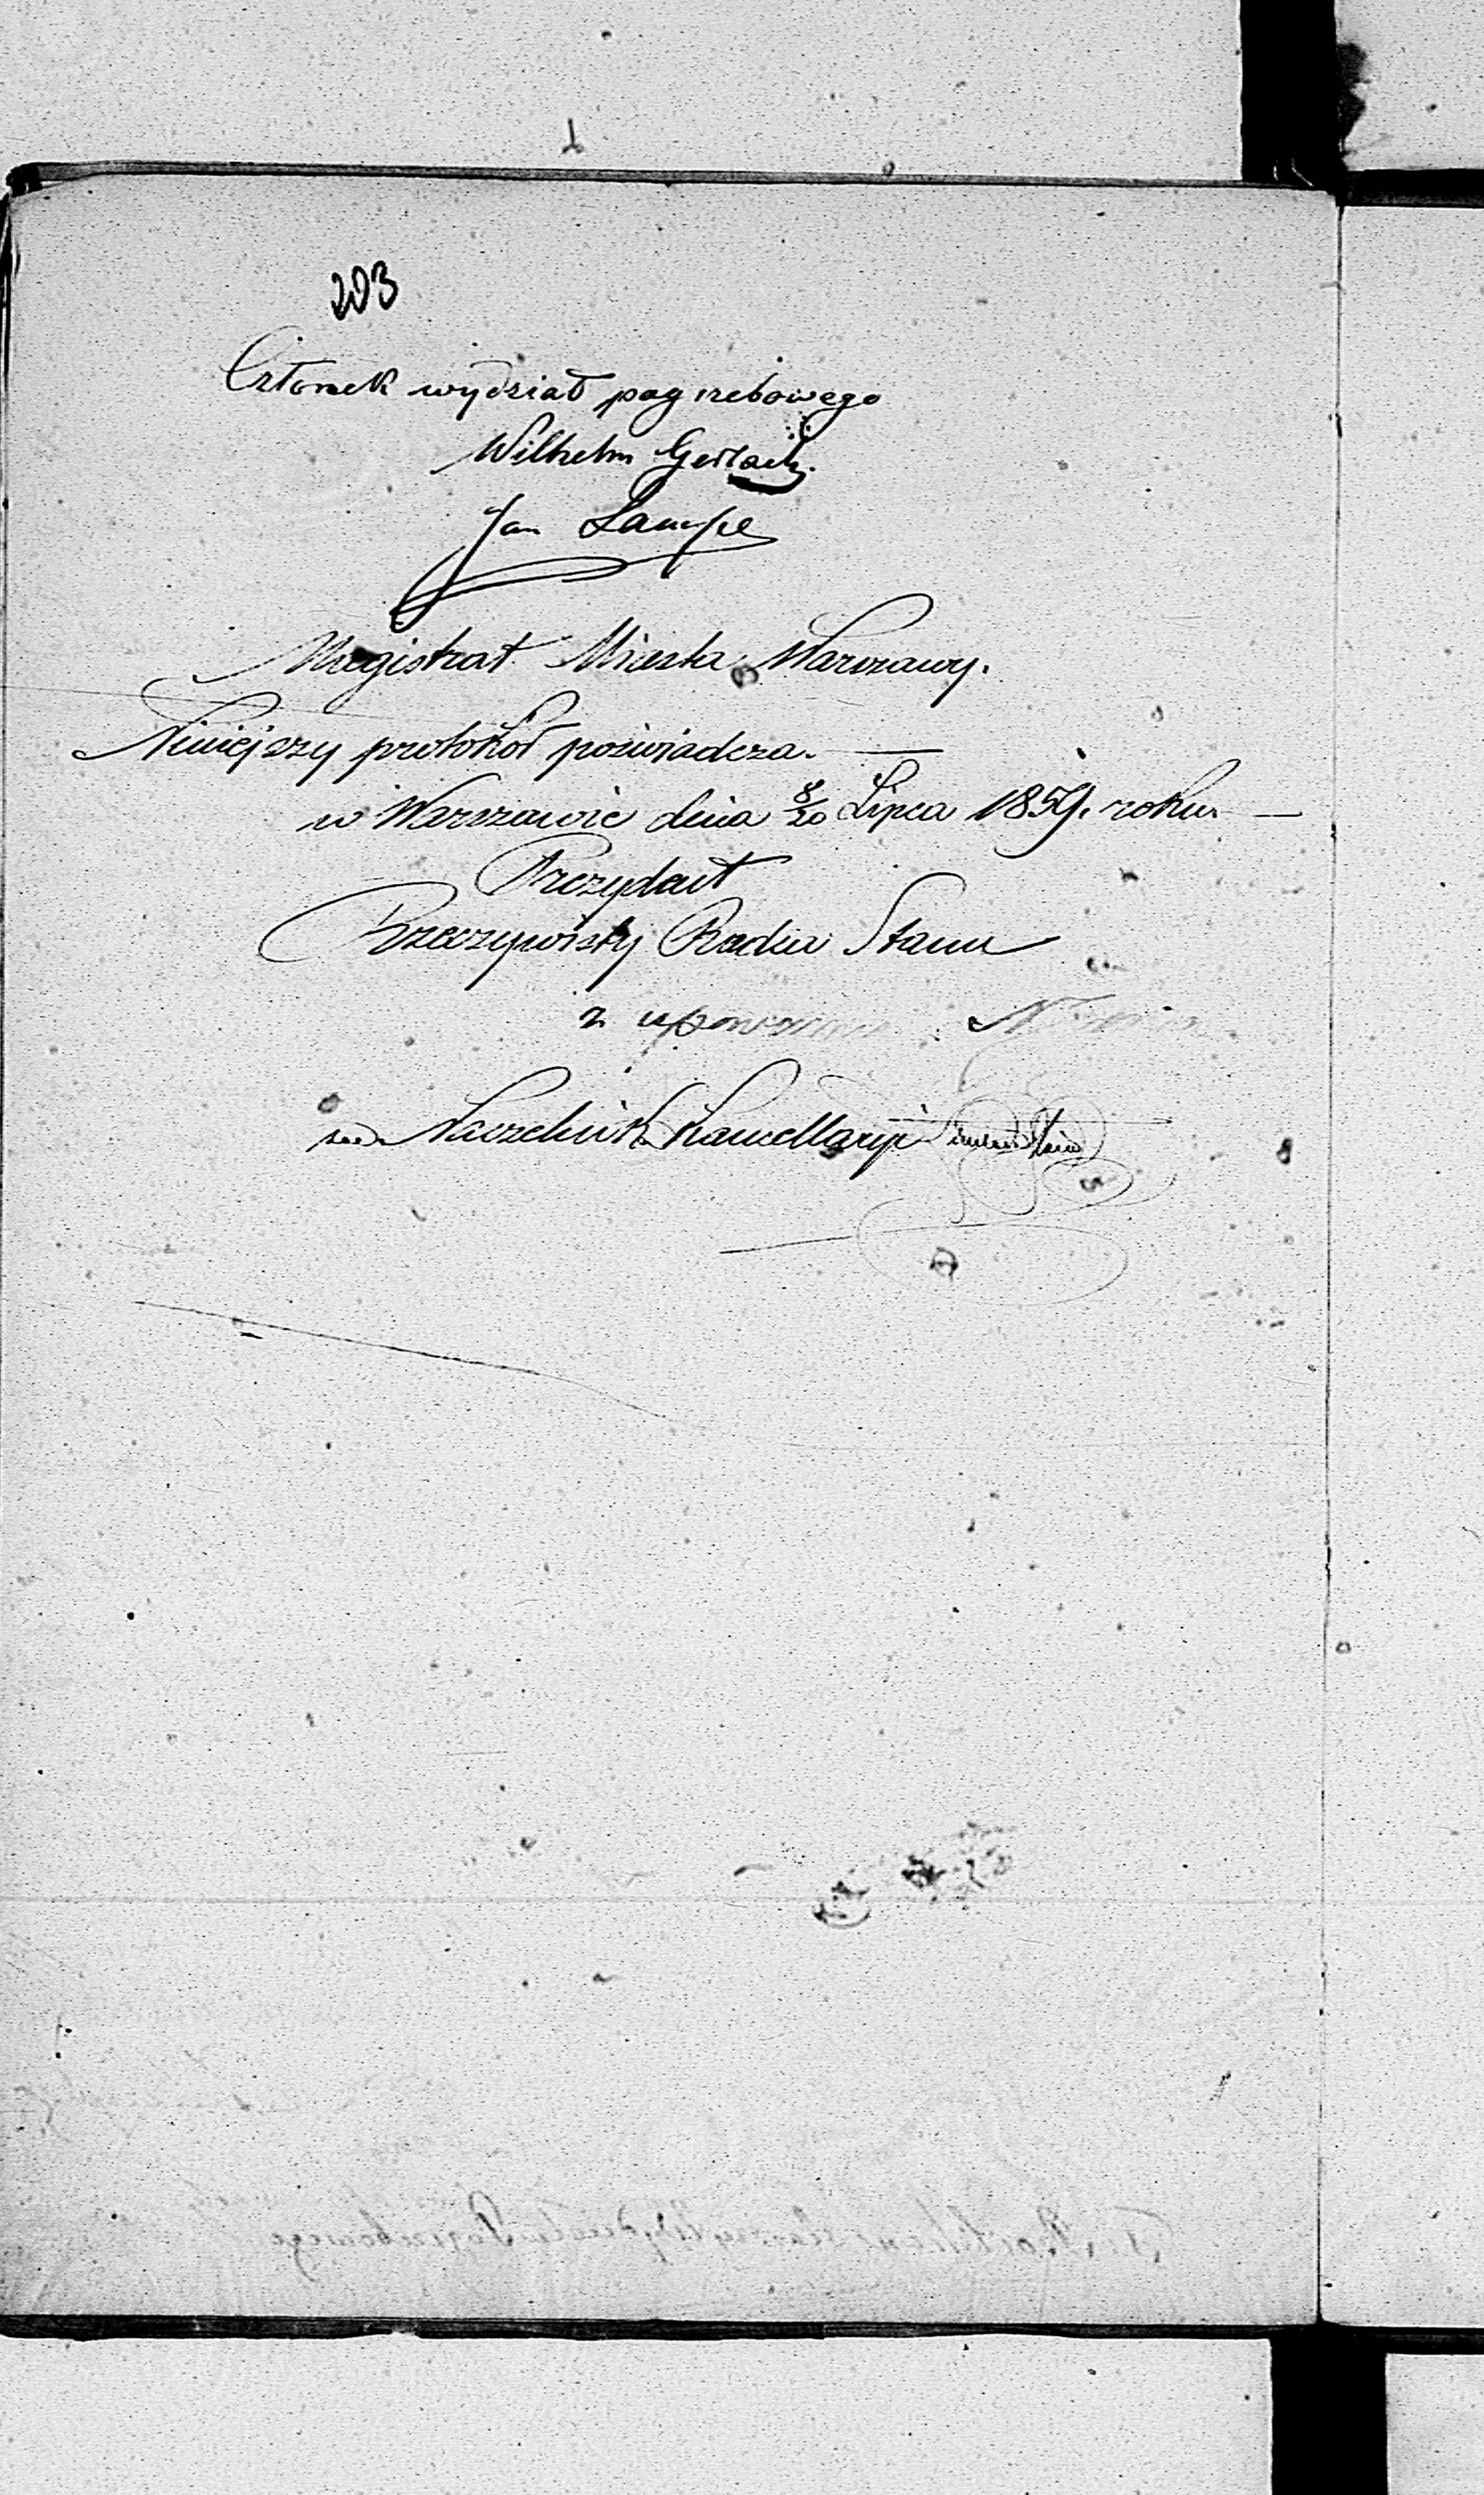 203
Członek wydział pogrzebowego
Wilhelm Gerlach.
Jan Lampe
Magistrat Miasta Warszawy.
Niniejszy protokół poświadcza. —
w Warszawie dnia 8/20 Lipca 1859. roku. —
Prezydent
Rzeczywisty Radca Stanu
z
Naczelnik Kancellaryi